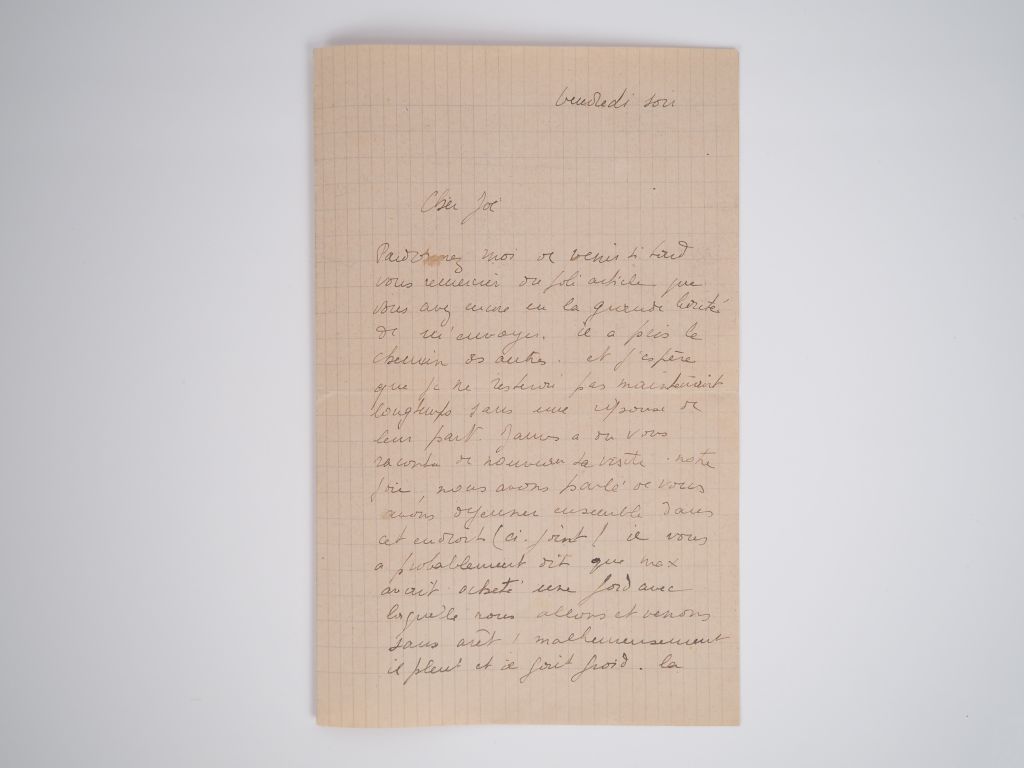 Vendredi soir
Cher Joe
Pardonnez moi de venir si tard
vous remercier du joli article que
vous avez encore eu la grande bonté
de m'envoyer. il a pris le
chemin des autres. et j'espère
que je ne resterai pas maintenant
longtemps sans une réponse de
leur part. James a du vous
raconter de nouveau sa visite. notre
joie, nous avons parlé de vous
avons dejeuner ensemble dans
cet endroit (ci-joint! il vous
a probablement dit que max
avait acheté une ford avec
laquelle nous allons et venons
sans arêt! malheureusement
il pleut et il fait froid. la